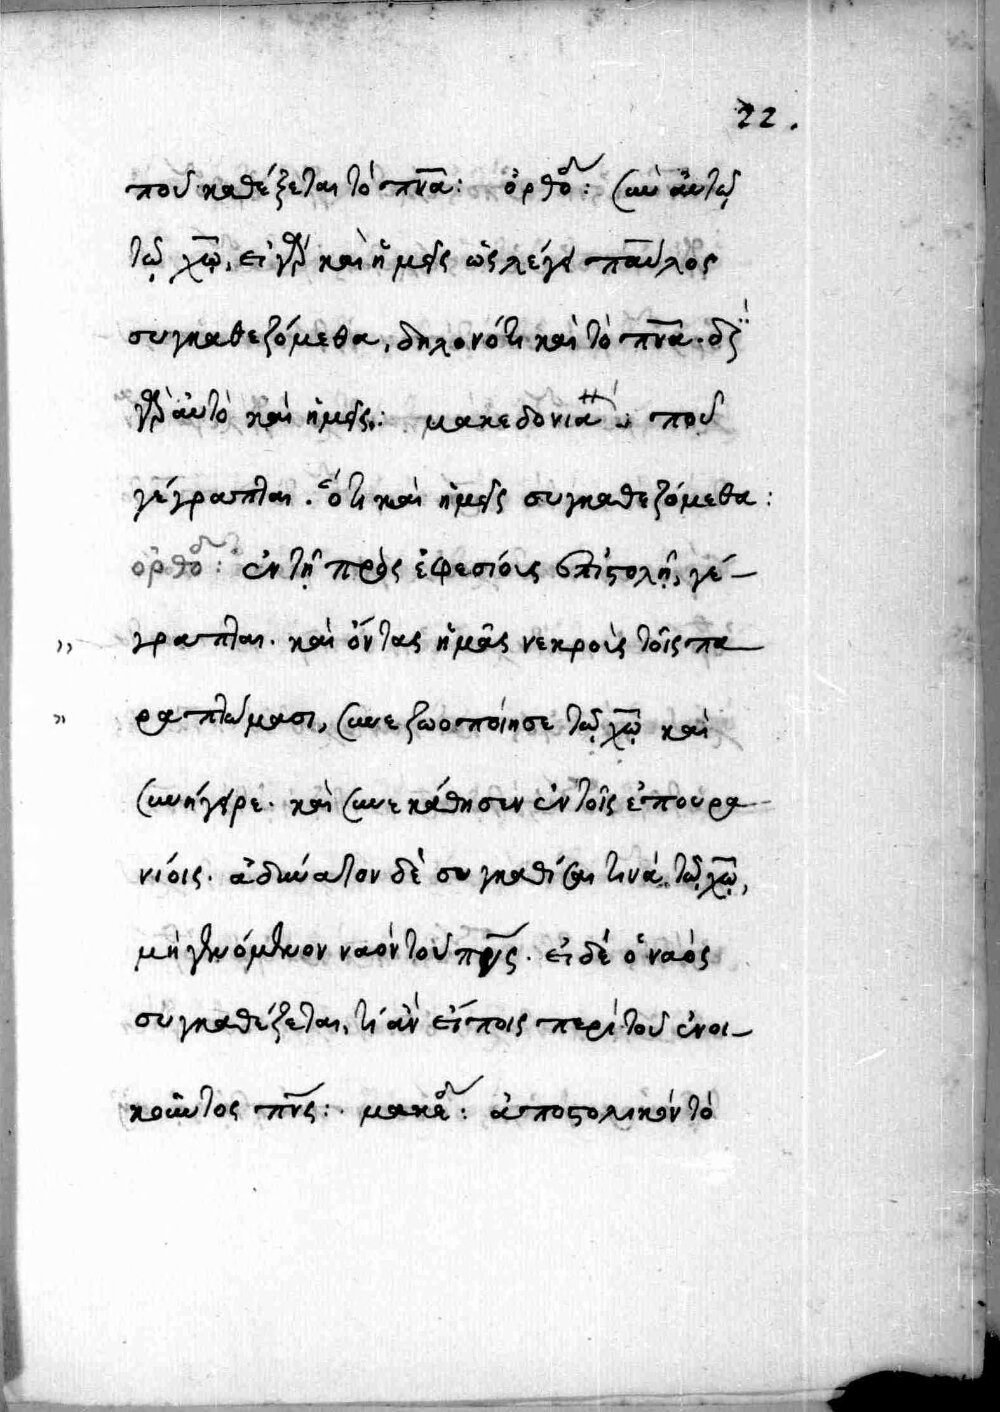 22.
ποῦ καθέζεται τὸ πν̅α: ὀρθοδ: σὺν αὐτῷ
τῷ χ̅ω̅, εἰ γὰρ καὶ ἡμεῖς ὡς λέγει παῦλος
συγκαθεζόμεθα, δηλονότι καὶ τὸ πν̅α.
γὰρ αὐτὸ καὶ ἡμεῖς: μακεδονια ποῦ
γέγραπται. ὅτι καὶ ἡμεῖς συγκαθεζόμεθα:
ὀρθοδ: ἐν τῇ πρὸς ἐφεσίους ἐπιστολῇ, γέ–
,, γραπται. καὶ ὄντας ἡμᾶς νεκροὺς τοῖς πα–
,, ραπτώμασι, συνεζωοποίησε τῷ χ̅ω̅ καὶ
συνήγειρε. καὶ συνεκάθησεν ἐν τοῖς ἐπουρα–
νίοις. ἀδύνατον δὲ συγκαθίσαι τινά τῷ χ̅ω̅,
μὴ γενόμενον ναὸν τοῦ πν̅ς. εἰ δὲ ὁ ναὸς
συγκαθέζεται, τί ἂν εἴποις περὶ τοῦ ἐνοι–
κοῦντος πν̅ς: μακεδ: ἀποστολικὸν τὸ